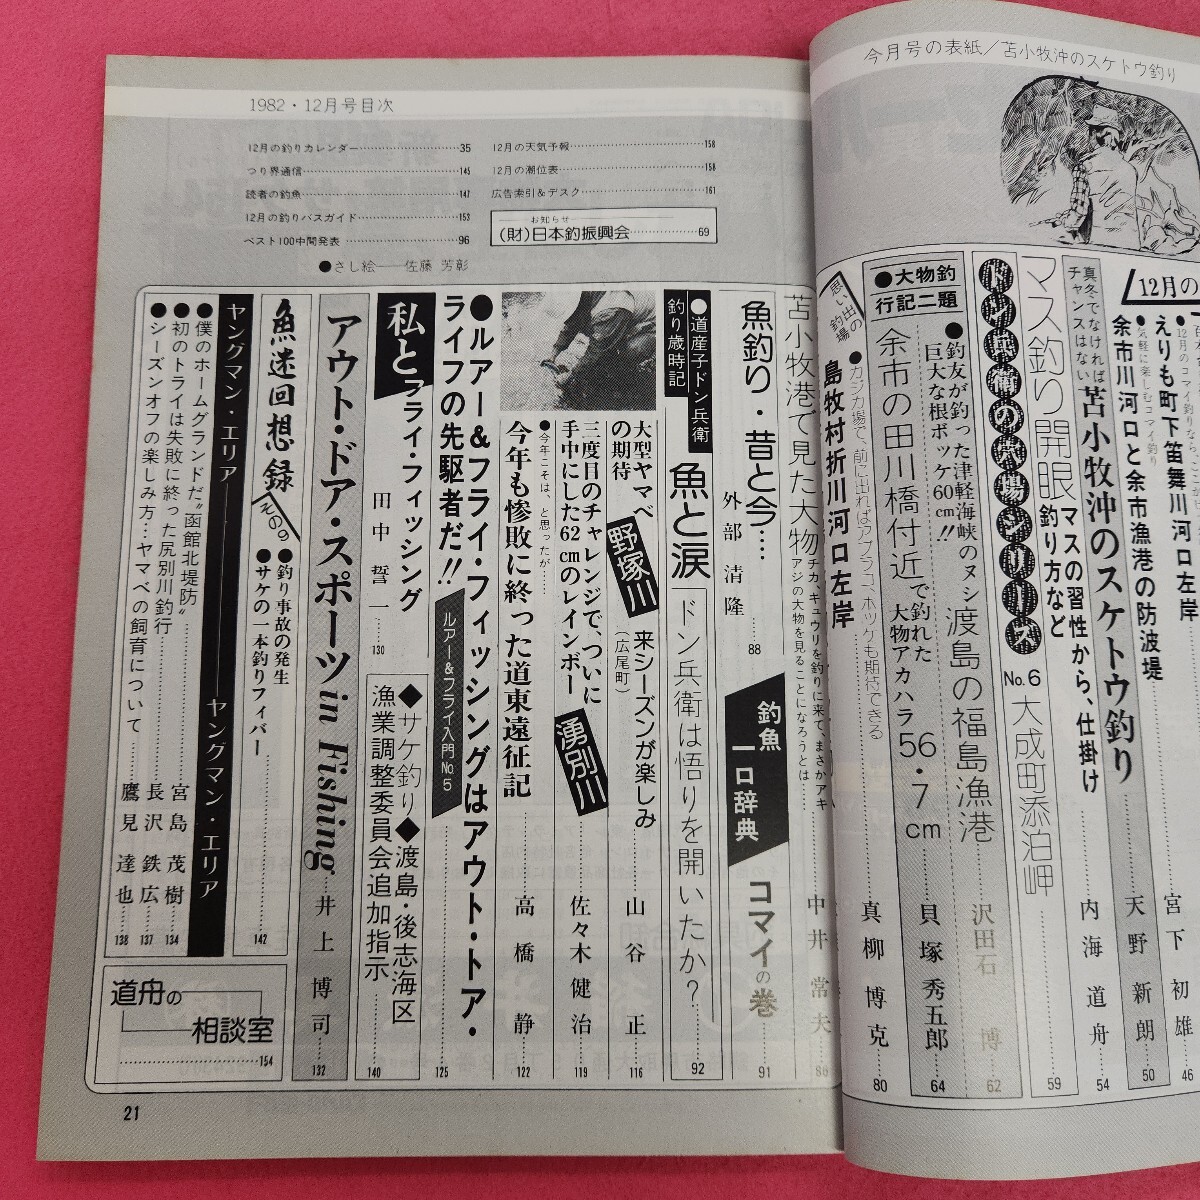 今月号の表紙／苫小牧沖のスケトウ釣り
1982・12月号目次
12月の釣りカレンダー 35
つり界通信 145
読者の釣魚 147
12月の釣りバスガイド 153
ベスト100中間発表 96
12月の天気予報 158
12月の潮位表 158
広告索引＆デスク 161
お知らせ
(財)日本釣振興会 69
●さし絵──佐藤 芳彰
12月の
えりも町下笛舞川河口左岸
宮下初雄 46
●気軽に楽しむコマイ釣り
余市川河口と余市漁港の防波堤
天野新朗 50
真冬でなければ
チャンスはない
苫小牧沖のスケトウ釣り
内海道舟 54
マス釣り開眼
マスの習性から、仕掛け
釣り方など
59
ドン兵衛の穴場シリーズ
No.6
大成町添泊岬
●釣友が釣った津軽海峡のヌシ
巨大な根ボッケ60cm!!
渡島の福島漁港
沢田石 博 62
●大物釣
行記二題
余市の田川橋付近で釣れた
大物アカハラ56・7cm
貝塚秀五郎 64
思い出の釣場
●カジカ場で、前に出ればアブラコ、ホッケも期待できる
島牧村折川河口左岸
真柳博克 80
苫小牧港で見た大物
チカ、キュウリを釣りに来て、まさかアキ
アジの大物を見ることになろうとは
中井常夫 86
魚釣り・昔と今…
外部清隆 88
釣魚
一口辞典
コマイの巻 91
●道産子ドン兵衛
釣り歳時記
魚と涙
ドン兵衛は悟りを開いたか？ 92
大型ヤマベ
の期待
野塚川
(広尾町)
来シーズンが楽しみ
山谷正 116
三度目のチャレンジで、ついに
手中にした62cmのレインボー
湧別川
佐々木健治 119
●今年こそは、と思ったが……
今年も惨敗に終った道東遠征記
高橋静 122
●ルアー＆フライ・フィッシングはアウト・ドア・
ライフの先駆者だ!!
ルアー＆フライ入門No.5
125
私とフライ・フィッシング
田中誓一 130
◆サケ釣り◆渡島・後志海区
漁業調整委員会追加指示
140
アウト・ドア・スポーツ in Fishing
井上博司 132
魚迷回想録
その9
●釣り事故の発生
●サケの一本釣りフィバー
142
ヤングマン・エリア──ヤングマン・エリア
●僕のホームグランドだ〝函館北堤防〟
宮島茂樹 134
●初のトライは失敗に終った尻別川釣行
長沢鉄広 137
●シーズンオフの楽しみ方…ヤマベの飼育について
鷹見達也 138
道舟の
相談室
154
21